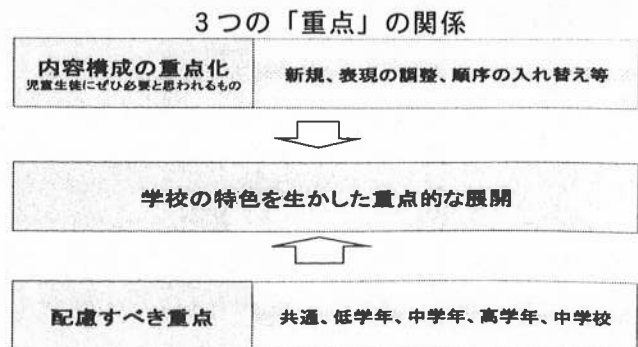 3つの「重点」の関係
内容構成の重点化
児童生徒にぜひ必要と思われるもの
新規、表現の調整、順序の入れ替え等
学校の特色を生かした重点的な展開
配慮すべき重点
共通、低学年、中学年、高学年、中学校